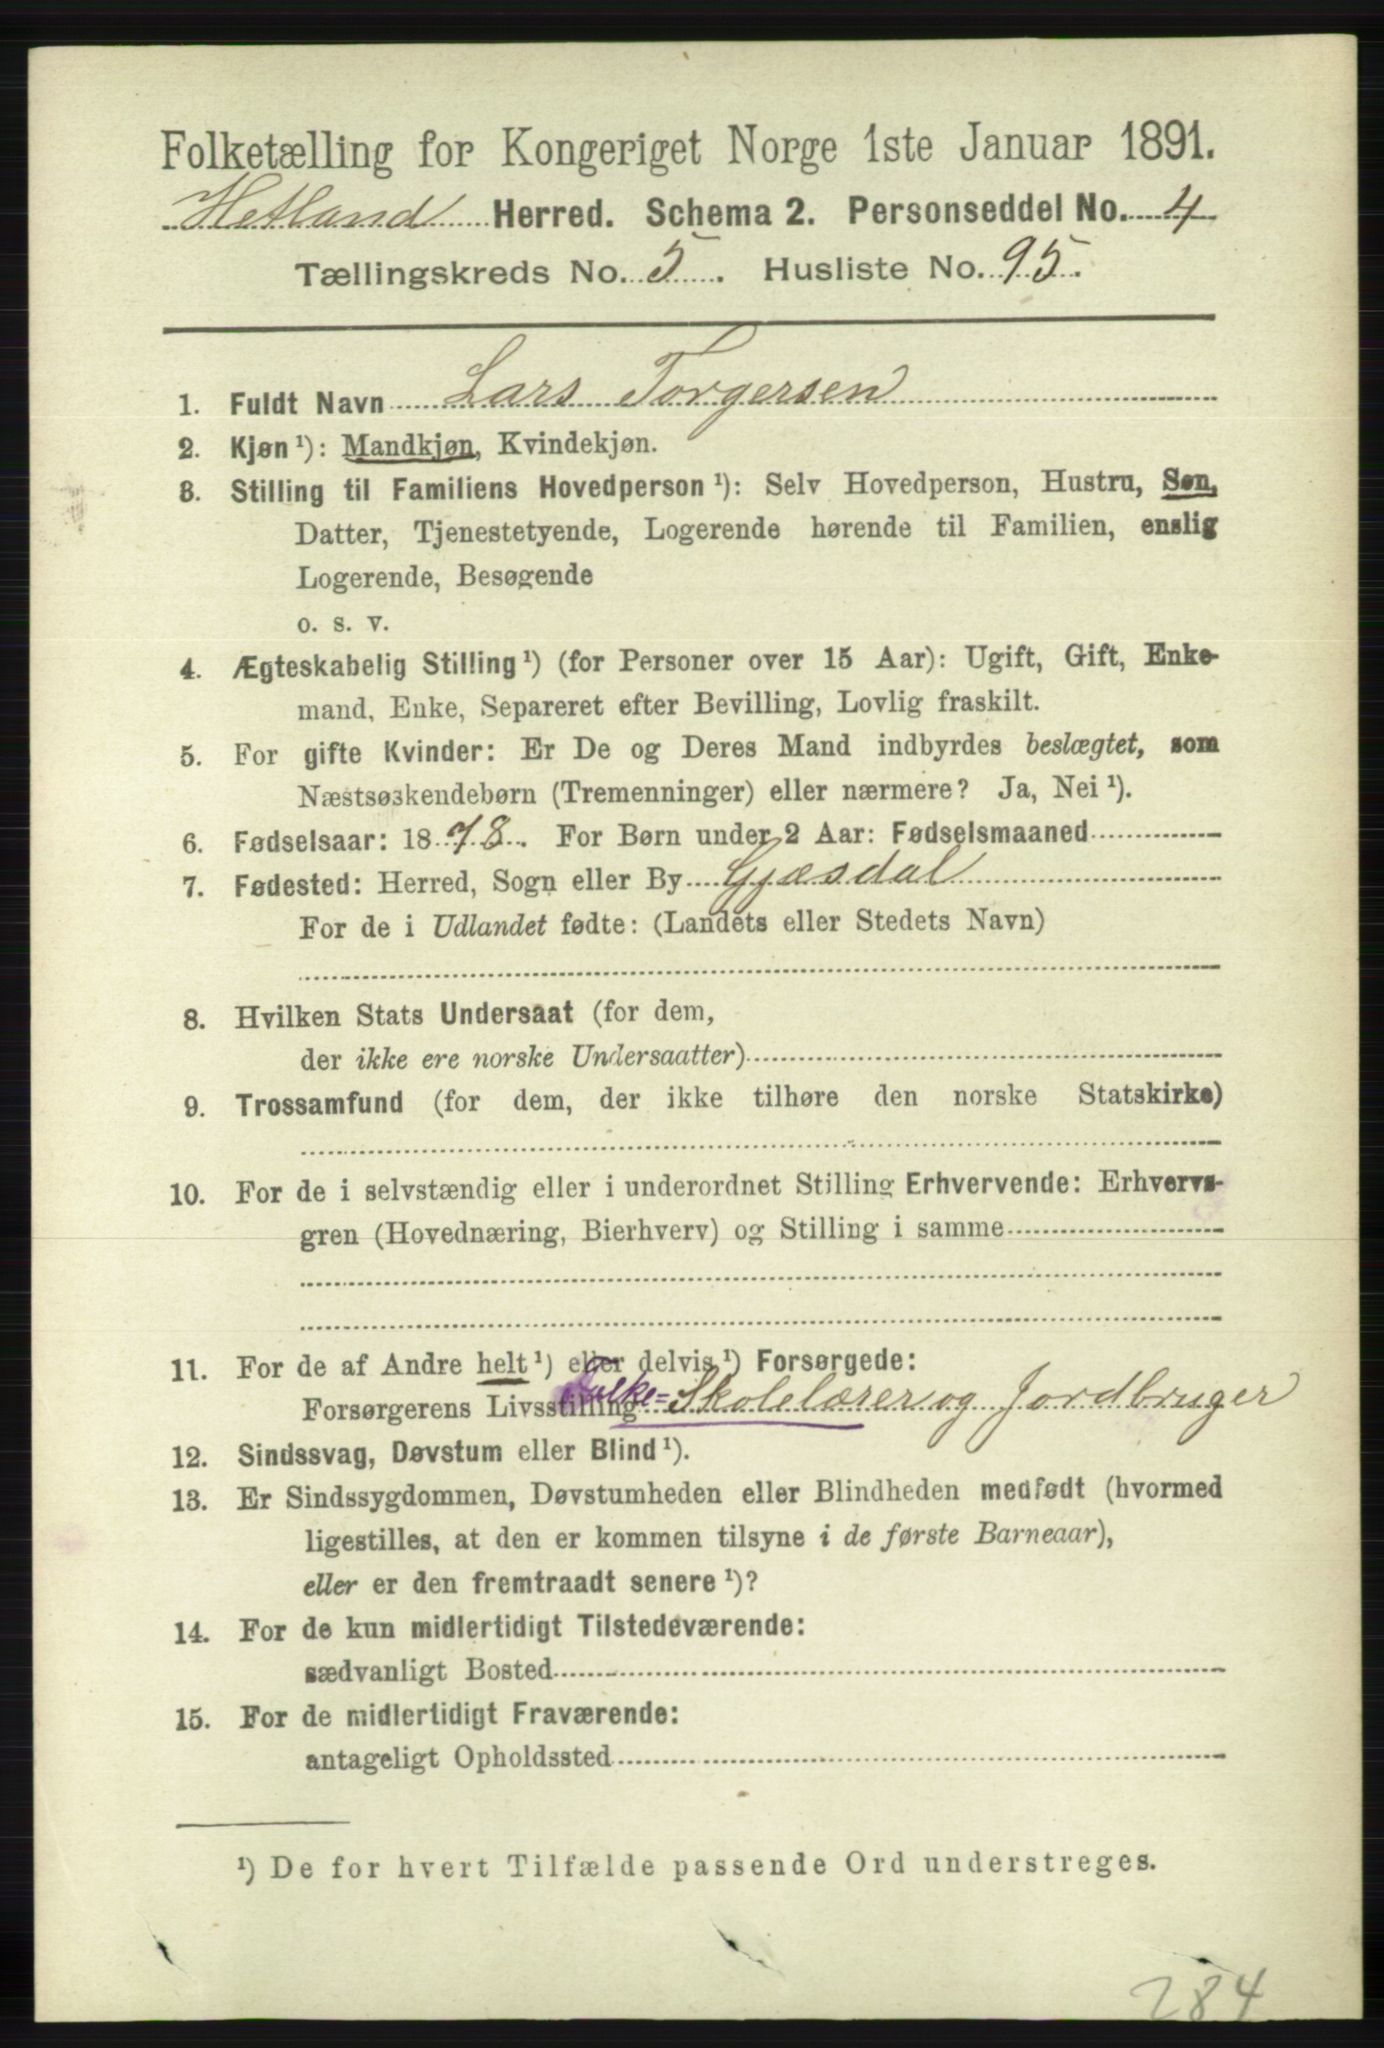 Folketælling for Kongeriget Norge 1ste Januar 1891.
Hetland Herred. Schema 2. Personseddel No. 4
Tællingskreds No. 5. Husliste No. 95.
1. Fuldt Navn Lars Torgersen
2. Kjøn¹): Mandkjøn, Kvindekjøn.
3. Stilling til Familiens Hovedperson¹): Selv Hovedperson, Hustru, Søn,
Datter, Tjenestetyende, Logerende hørende til Familien, enslig
Logerende, Besøgende
o. s. v.
4. Ægteskabelig Stilling¹) (for Personer over 15 Aar): Ugift, Gift, Enke-
mand, Enke, Separeret efter Bevilling, Lovlig fraskilt.
5. For gifte Kvinder: Er De og Deres Mand indbyrdes beslægtet, som
Næstsøskendebørn (Tremenninger) eller nærmere? Ja, Nei¹).
6. Fødselsaar: 1878. For Børn under 2 Aar: Fødselsmaaned
7. Fødested: Herred, Sogn eller By Gjæsdal
For de i Udlandet fødte: (Landets eller Stedets Navn)
8. Hvilken Stats Undersaat (for dem,
der ikke ere norske Undersaatter)
9. Trossamfund (for dem, der ikke tilhøre den norske Statskirke)
10. For de i selvstændig eller i underordnet Stilling Erhvervende: Erhvervs-
gren (Hovednæring, Bierhverv) og Stilling i samme
11. For de af Andre helt¹) eller delvis¹) Forsørgede:
Forsørgerens Livsstilling Folke= Skolelærer og Jordbruger
12. Sindssvag, Døvstum eller Blind¹).
13. Er Sindssygdommen, Døvstumheden eller Blindheden medfødt (hvormed
ligestilles, at den er kommen tilsyne i de første Barneaar),
eller er den fremtraadt senere¹)?
14. For de kun midlertidigt Tilstedeværende:
sædvanligt Bosted
15. For de midlertidigt Fraværende:
antageligt Opholdssted
¹) De for hvert Tilfælde passende Ord understreges.
284